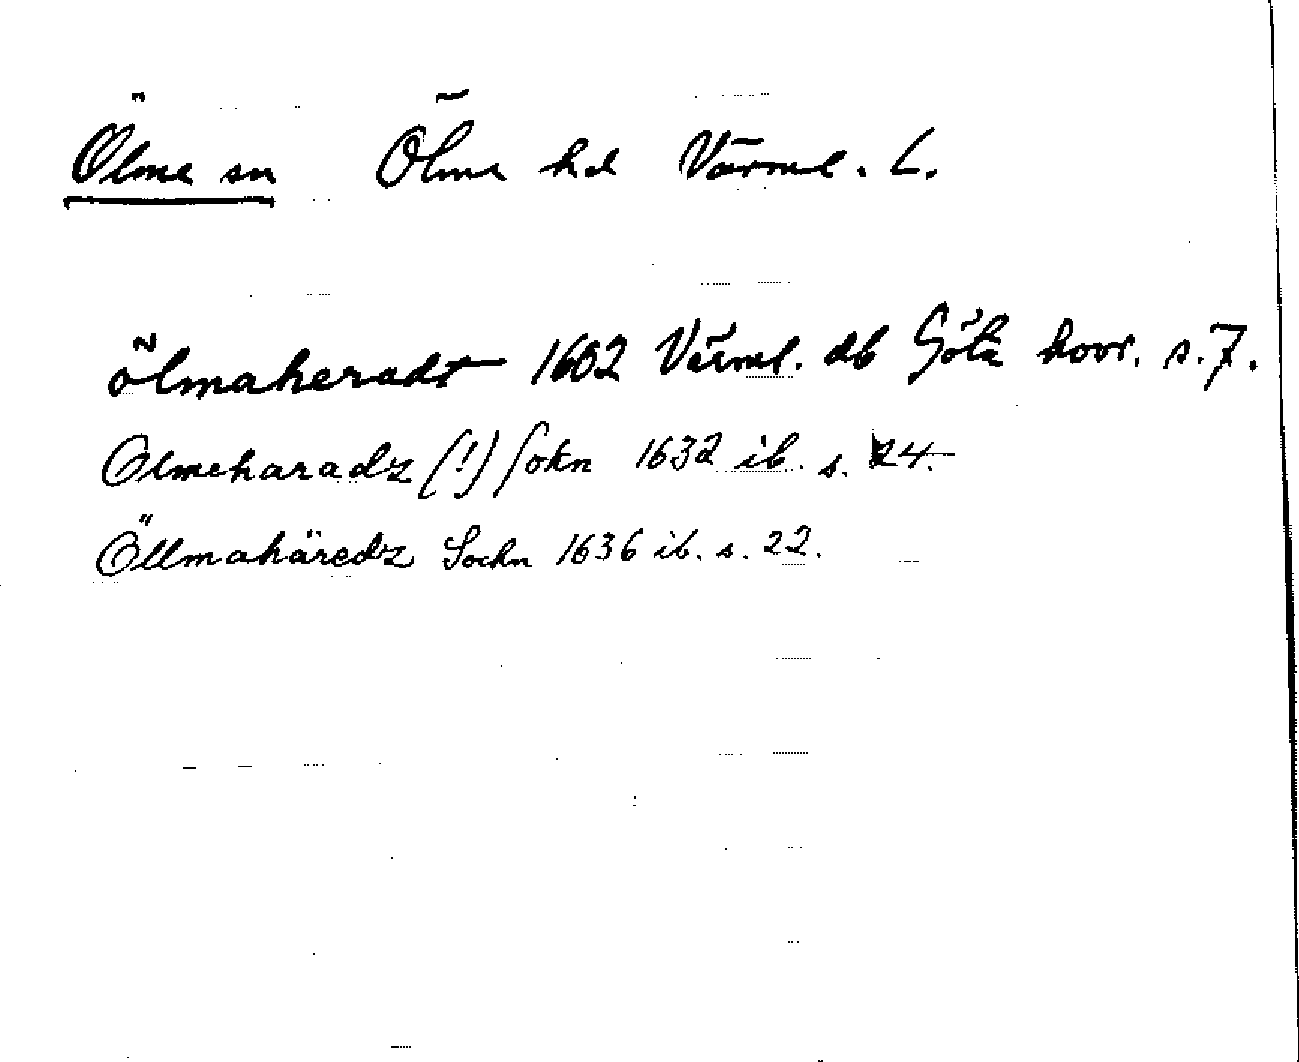 Ölme sn Ölme hd Värml. L.
ölmaheradt 1602 Värml. db Göta hovr. s. 7.
Olmeharadz (!) Sokn 1632 ib. s. 24.
Öllmahäredz Sochn 1636 ib. s. 22.